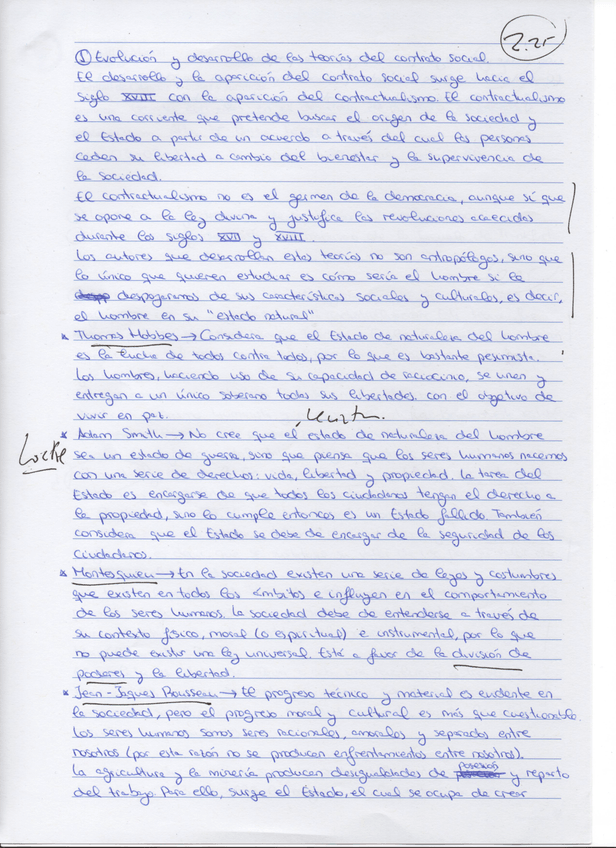 2.25
① Evolución y desarrollo de las teorías del contrato social.
El desarrollo y la aparición del contrato social surge hacia el
siglo XVIII con la aparición del contractualismo. El contractualismo
es una corriente que pretende buscar el origen de la sociedad y
el Estado a partir de un acuerdo a través del cual las personas
ceden su libertad a cambio del bienestar y la supervivencia de
la sociedad.
El contractualismo no es el germen de la democracia, aunque sí que
se opone a la ley divina y justifica las revoluciones acaecidas
durante los siglos XVII y XVIII.
Los autores que desarrollan estas teorías no son antropólogos, sino que
lo único que quieren estudiar es cómo sería el hombre si le
despojáramos de sus características sociales y culturales, es decir,
al hombre en su "estado natural"
* Thomas Hobbes → Considera que el Estado de naturaleza del hombre
es la lucha de todos contra todos, por lo que es bastante pesimista.
Los hombres, haciendo uso de su capacidad de raciocinio, se unen y
entregan a un único soberano todas sus libertades, con el objetivo de
vivir en paz.
* Adam Smith → No cree que el estado de naturaleza del hombre
Locke
sea un estado de guerra, sino que piensa que los seres humanos nacemos
con una serie de derechos: vida, libertad y propiedad. La tarea del
Estado es encargarse de que todos los ciudadanos tengan el derecho a
la propiedad, si no lo cumple entonces es un Estado fallido. También
considera que el Estado se debe de encargar de la seguridad de los
ciudadanos.
* Montesquieu → En la sociedad existen una serie de leyes y costumbres
que existen en todos los ámbitos e influyen en el comportamiento
de los seres humanos. La sociedad debe de entenderse a través de
su contexto físico, moral (o espiritual) e instrumental, por lo que
no puede existir una ley universal. Está a favor de la división de
poderes y la libertad.
* Jean-Jaques Rousseau → El progreso técnico y material es evidente en
la sociedad, pero el progreso moral y cultural es más que cuestionable.
Los seres humanos somos seres racionales, amorales y separados entre
nosotros (por esta razón no se producen enfrentamientos entre nosotros).
La agricultura y la minería producen desigualdades de posesión y reparto
del trabajo. Para ello, surge el Estado, el cual se ocupa de crear